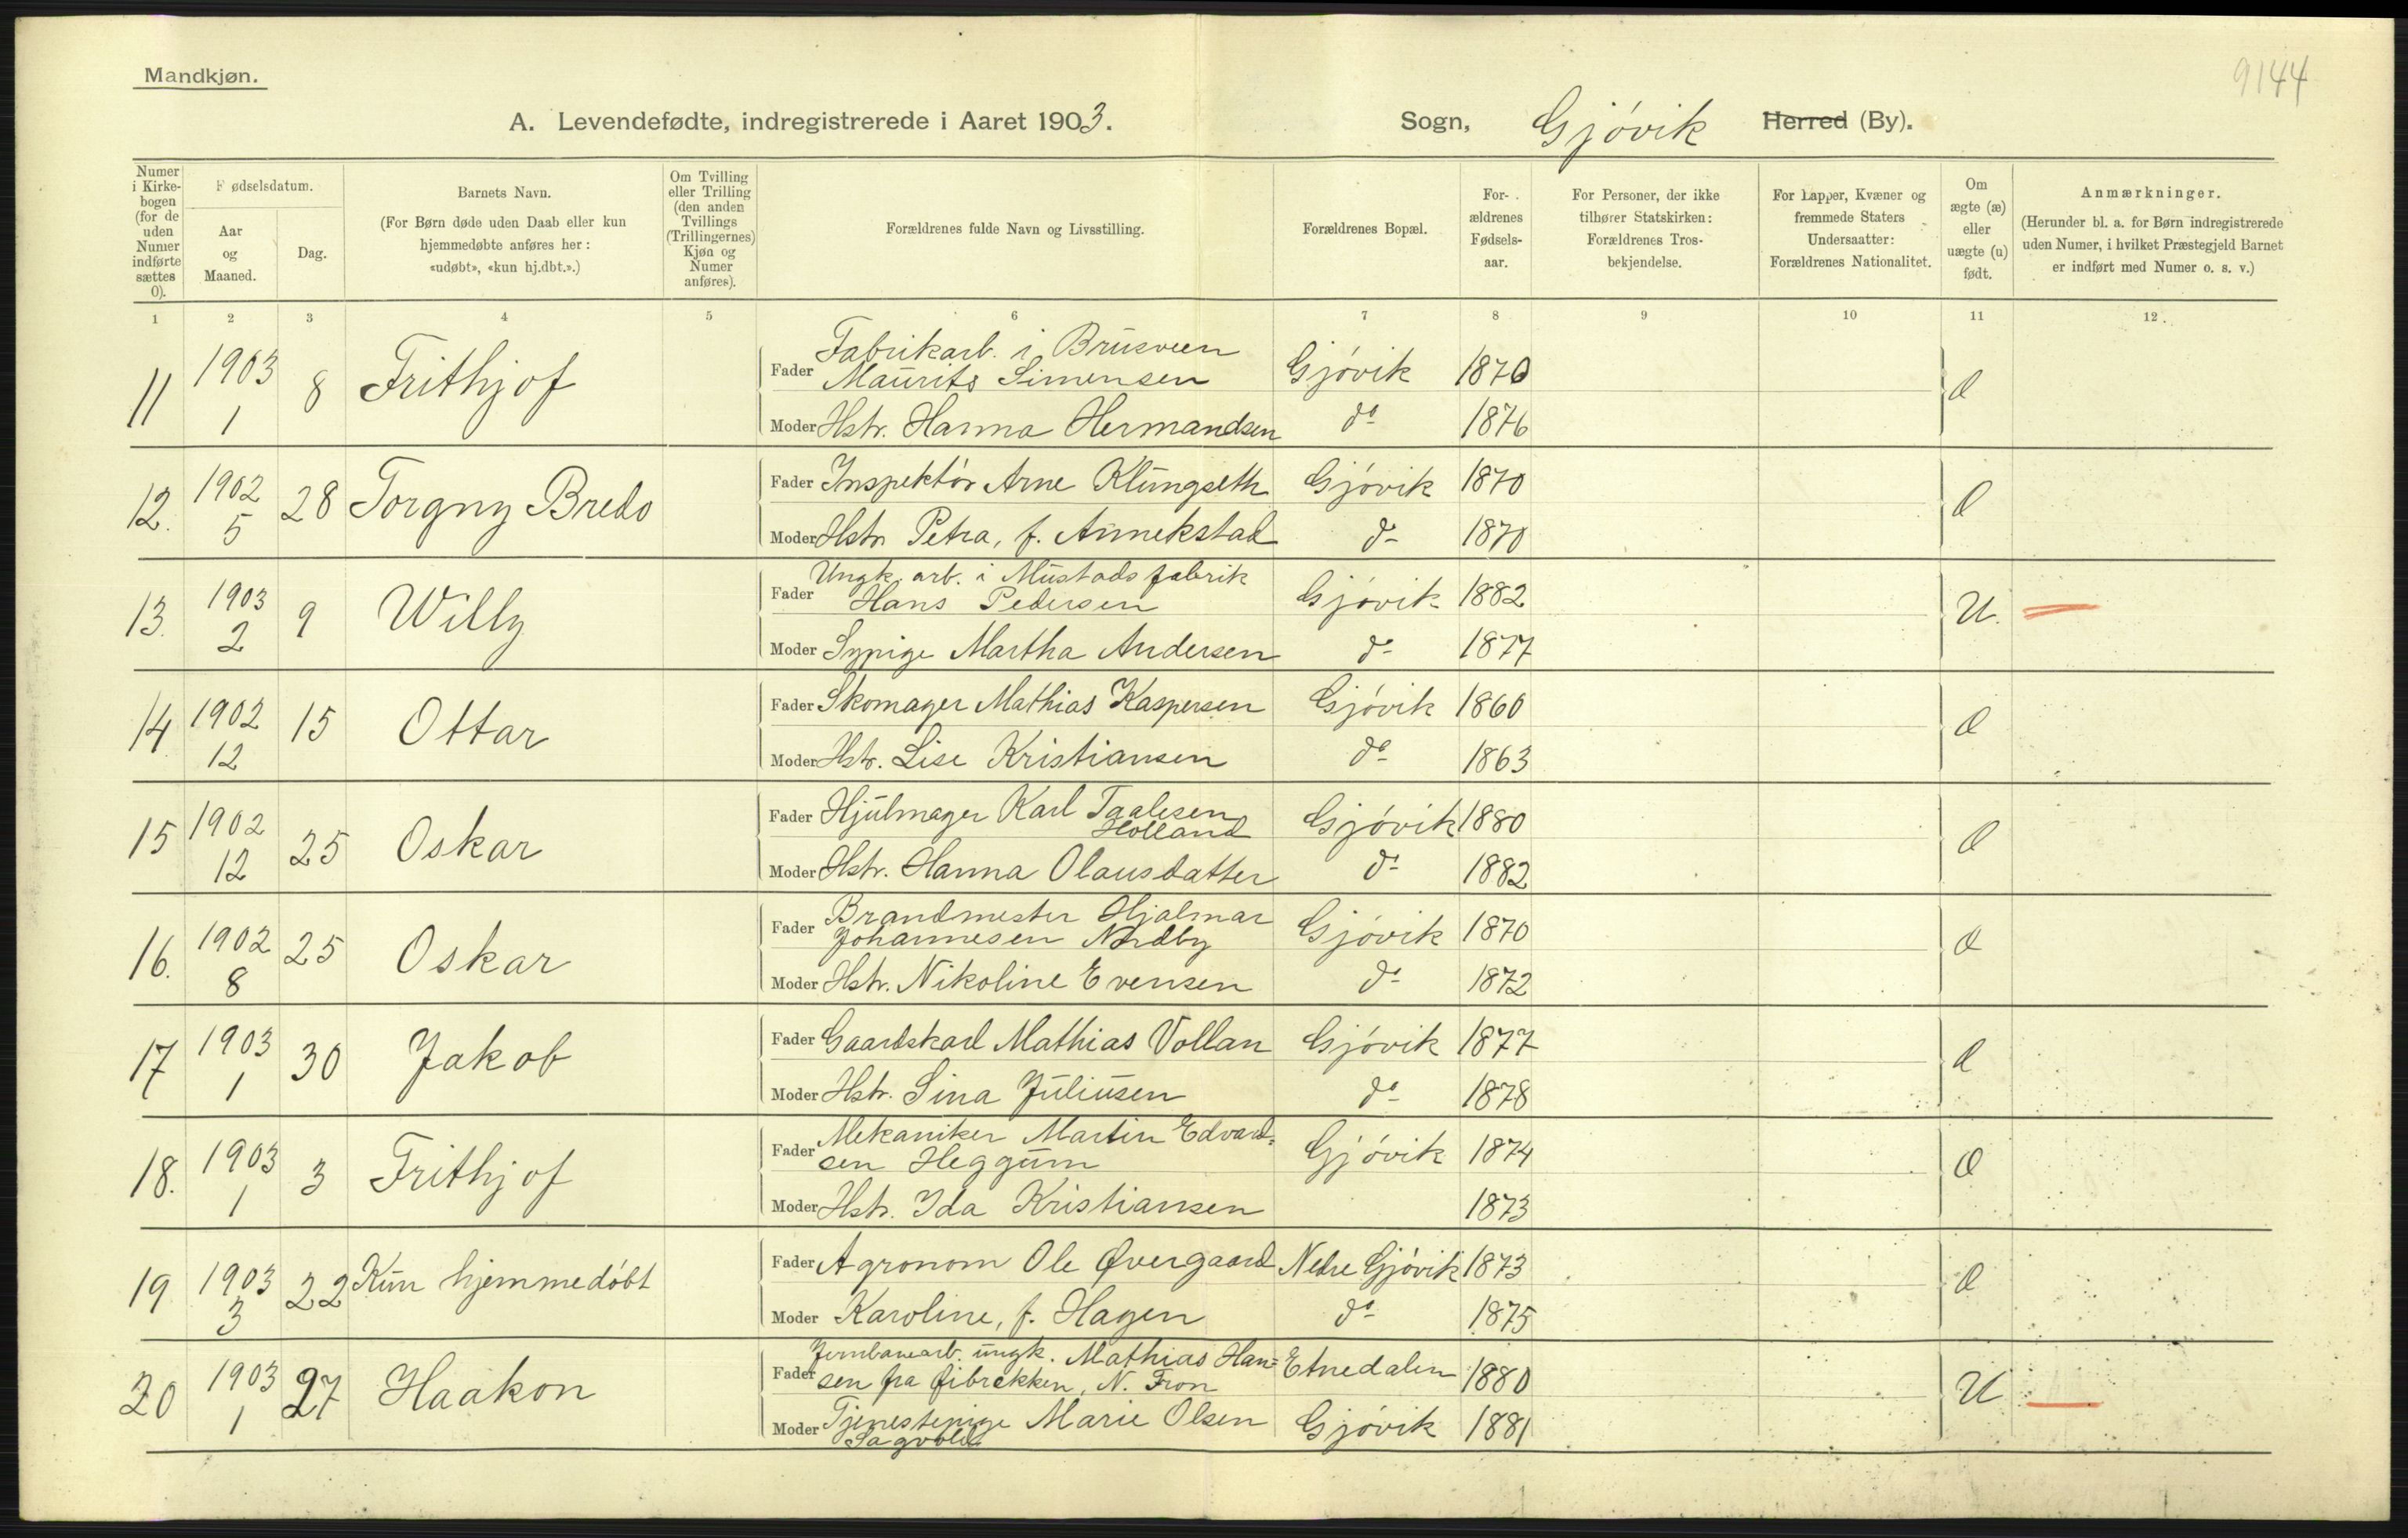 Mandkjøn.
9144
A. Levendefødte, indregistrerede i Aaret 1903. Sogn, Gjövik Herred (By).
Numer i Kirkebogen (for de uden Numer indførte sættes 0).
Fødselsdatum.
Aar og Maaned.
Dag.
Barnets Navn.
(For Børn døde uden Daab eller kun hjemmedøbte anføres her: «udøbt», «kun hj.dbt.».)
Om Tvilling eller Trilling (den anden Tvillings (Trillingernes) Kjøn og Numer anføres).
Forældrenes fulde Navn og Livsstilling.
Forældrenes Bopæl.
For-ældrenes Fødsels-aar.
For Personer, der ikke tilhører Statskirken: Forældrenes Tros-bekjendelse.
For Lapper, Kvæner og fremmede Staters Undersaatter: Forældrenes Nationalitet.
Om ægte (æ) eller uægte (u) født.
Anmærkninger.
(Herunder bl. a. for Børn indregistrerede uden Numer, i hvilket Præstegjeld Barnet er indført med Numer o. s. v.)
1 2 3 4 5 6 7 8 9 10 11 12
11 1903 1 8 Frithjof
Fader Fabrikarb. i Brusveen
Maurits Simensen Gjövik 1870 Æ
Moder Hstr. Hanna Hermandsen do 1876
12. 1902 5 28 Torgny Bredo
Fader Inspektör Arne Klungseth Gjövik 1870 Æ
Moder Hstr Petra, f. Annekstad do 1870
13. 1903 2 9 Willy
Fader Ungk. arb. i Mustads fabrik
Hans Pedersen Gjövik 1882 U.
Moder Sypige Martha Andersen do 1877
14 1902 12 15 Ottar
Fader Skomager Mathias Kaspersen Gjövik 1860 Æ
Moder Hstr. Lise Kristiansen do 1863
15 1902 12 25 Oskar
Fader Hjulmager Karl Taalesen
Holland Gjövik 1880 Æ
Moder Hstr. Hanna Olausdatter do 1882
16. 1902 8 25 Oskar
Fader Brandmester Hjalmar
Johannesen Nordby Gjövik 1870 Æ
Moder Hstr. Nikoline Evensen do 1872
17 1903 1 30 Jakob
Fader Gaardskarl Mathias Vollan Gjövik 1877 Æ
Moder Hstr. Sina Juliusen do 1878
18. 1903 1 3 Frithjof
Fader Mekaniker Martin Edvard=
sen Heggum Gjövik 1874 Æ
Moder Hstr. Ida Kristiansen 1873
19 1903 3 22 Kun hjemmedöbt
Fader Agronom Ole Øvergaard Nedre Gjövik 1873 Æ
Moder Karoline, f. Hagen do 1875
20 1903 1 27 Haakon
Fader Jernbanearb. ungk. Mathias Han= Etnedalen
sen fra N. Fron 1880 U
Moder Tjenestepige Marie Olsen Gjövik 1881